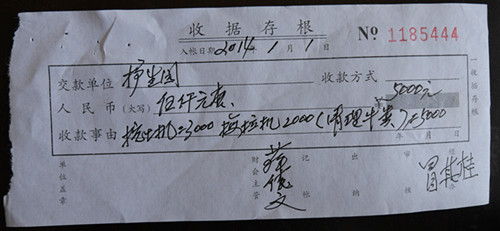 收据存根
入帐日期 2014年1月1日
Nº 1185444
交款单位 护生园 收款方式
人民币(大写) 伍仟元食. 5000元
收款事由 挖土机=3000 拖拉机2000(清理牛粪)=5000
单位盖章 财会主管 蔡俊文 记帐 出纳 审核 经办 冒其桂
一收据存根